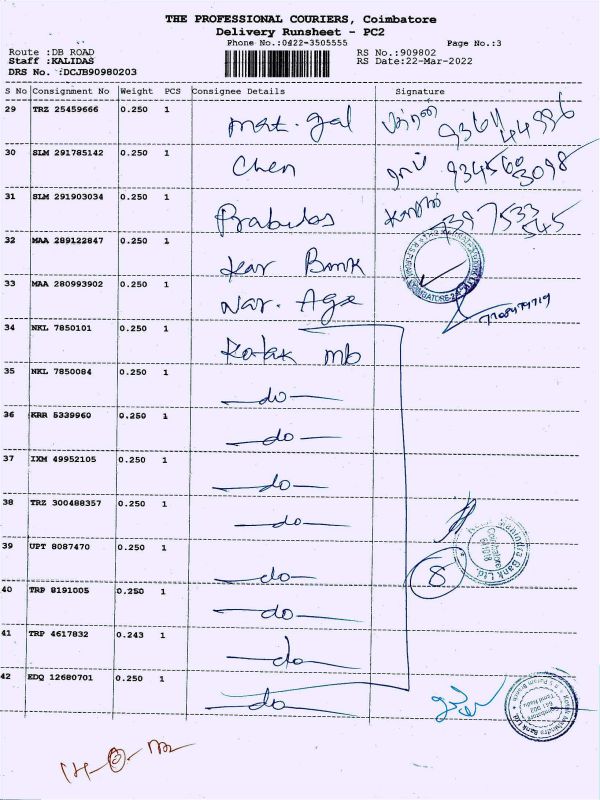 THE PROFESSIONAL COURIERS, Coimbatore
Delivery Runsheet - PC2
Phone No.:0422-3505555 Page No.:3
Route :DB ROAD RS No.:909802
Staff :KALIDAS RS Date:22-Mar-2022
DRS No. :DCJB90980203
S No Consignment No Weight PCS Consignee Details Signature
29 TRZ 25459666 0.250 1 mat. gal
30 SLM 291785142 0.250 1 Chen
31 SLM 291903034 0.250 1 Prabudas
32 MAA 289122847 0.250 1 Kar Bank
33 MAA 280993902 0.250 1 Nar. Age
34 NKL 7850101 0.250 1 Kotak mb
35 NKL 7850084 0.250 1 do
36 KRR 5339960 0.250 1 do
37 IXM 49952105 0.250 1 do
38 TRZ 300488357 0.250 1 do
39 UPT 8087470 0.250 1 do 8
40 TRP 8191005 0.250 1 do
41 TRP 4617832 0.243 1 do
42 EDQ 12680701 0.250 1 do